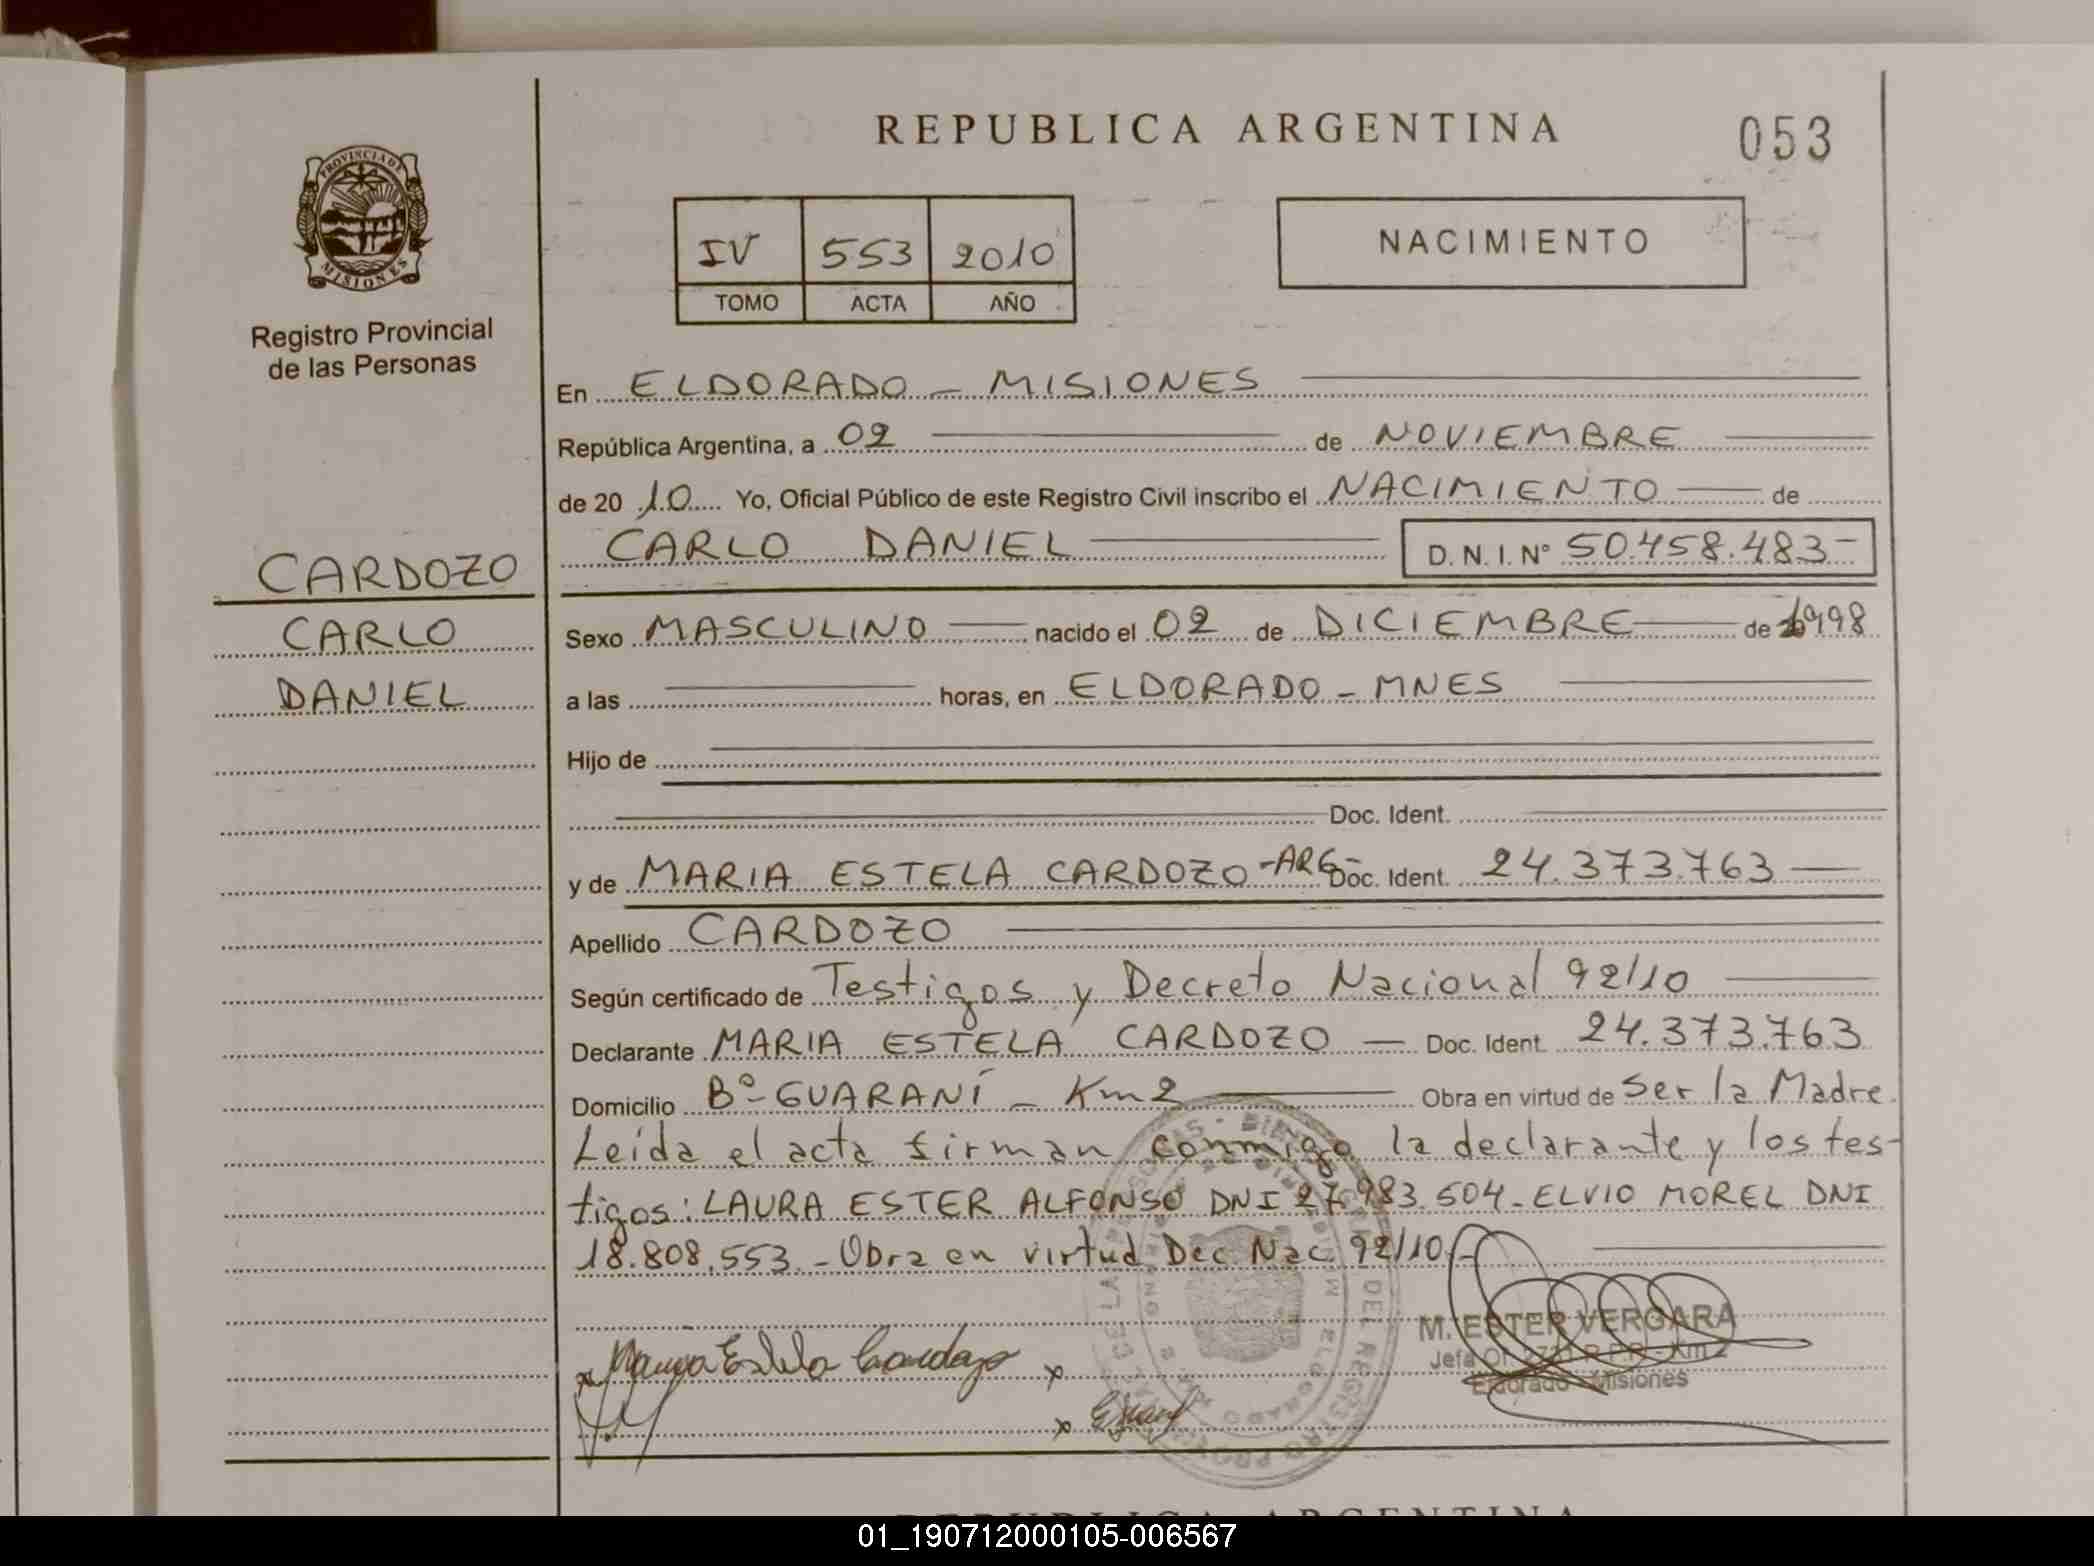 REPUBLICA ARGENTINA
053
PROVINCIA DE
MISIONES
Registro Provincial
de las Personas
IV 553 2010
TOMO ACTA AÑO
NACIMIENTO
En ELDORADO - MISIONES
República Argentina, a 02 de NOVIEMBRE
de 20 10 Yo, Oficial Público de este Registro Civil inscribo el NACIMIENTO de
CARLO DANIEL D. N. I. N° 50.458.483-
CARDOZO
CARLO
DANIEL
Sexo MASCULINO nacido el 02 de DICIEMBRE de 1998
a las horas, en ELDORADO - MNES
Hijo de
Doc. Ident.
y de MARIA ESTELA CARDOZO -ARG- Doc. Ident. 24.373.763
Apellido CARDOZO
Según certificado de Testigos y Decreto Nacional 92/10
Declarante MARIA ESTELA CARDOZO - Doc. Ident. 24.373.763
Domicilio Bº- GUARANÍ - Km 2 Obra en virtud de Ser la Madre.
Leída el acta firman conmigo la declarante y los tes-
tigos: LAURA ESTER ALFONSO DNI 27.983.504 - ELVIO MOREL DNI
18.808.553 - Obra en virtud Dec. Nac 92/10 -
M. ESTER VERGARA
Jefa Of. 2731 R.P.P. - Km 2
Eldorado - Misiones
x Maria Estela Cardozo x
x
REPUBLICA ARGENTINA
01_190712000105-006567